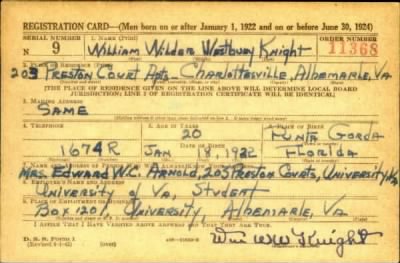 REGISTRATION CARD—(Men born on or after January 1, 1922 and on or before June 30, 1924)
SERIAL NUMBER 1. NAME (Print) ORDER NUMBER
N 9 William Wilder Westbury Knight 11368
2. PLACE OF RESIDENCE (Print)
203 Preston Court Apts. Charlottesville, Albemarle, Va
(THE PLACE OF RESIDENCE GIVEN ON THE LINE ABOVE WILL DETERMINE LOCAL BOARD
JURISDICTION; LINE 2 OF REGISTRATION CERTIFICATE WILL BE IDENTICAL)
3. MAILING ADDRESS
SAME
4. TELEPHONE 5. AGE IN YEARS 6. PLACE OF BIRTH
20 Punta Gorda
1674R Jan 18, 1922 Florida
7. NAME AND ADDRESS OF PERSON WHO WILL ALWAYS KNOW YOUR ADDRESS
Mrs. Edward W.C. Arnold, 203 Preston Courts, University, Va
8. EMPLOYER'S NAME AND ADDRESS
University of Va, Student
9. PLACE OF EMPLOYMENT OR BUSINESS
Box 1201 University, Albemarle, Va
I AFFIRM THAT I HAVE VERIFIED ABOVE ANSWERS AND THAT THEY ARE TRUE.
D. S. S. Form 1
(over)
Wm W W Knight